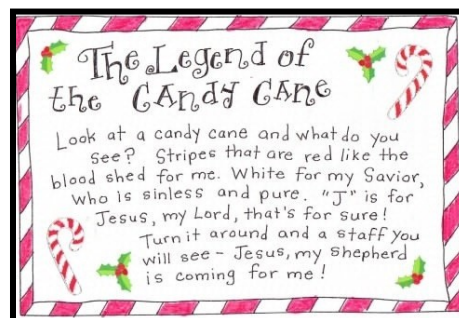 The Legend of
the Candy Cane
Look at a candy cane and what do you
see? Stripes that are red like the
blood shed for me. White for my Savior,
who is sinless and pure. "J" is for
Jesus, my Lord, that's for sure!
Turn it around and a staff you
will see - Jesus, my shepherd
is coming for me!